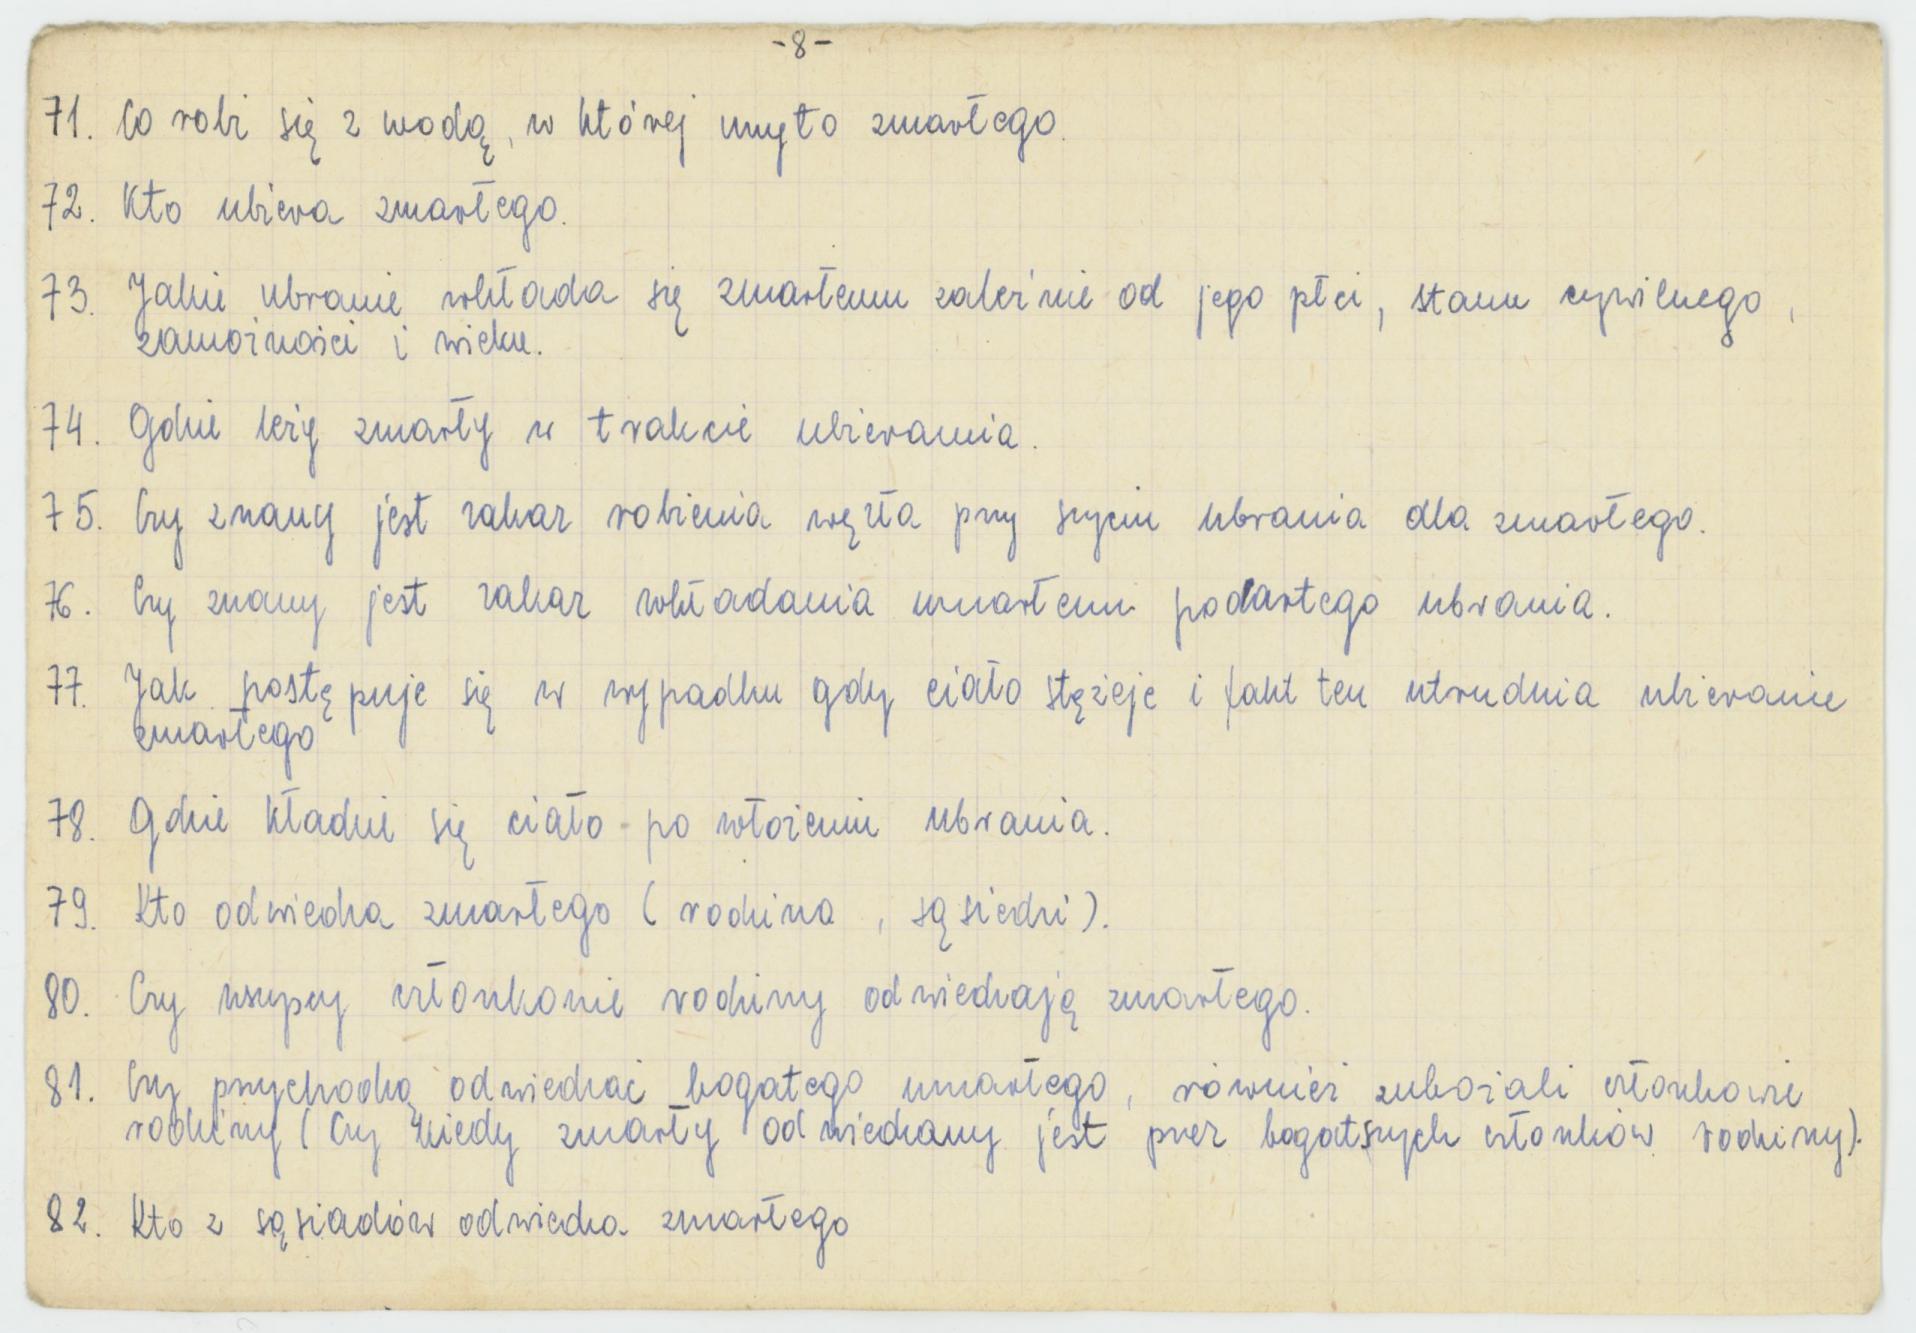 -8-
71. Co robi się z wodą, w której myto zmarłego.
72. Kto ubiera zmarłego.
73. Jakie ubranie wkłada się zmarłemu zależnie od jego płci, stanu cywilnego,
zamożności i wieku.
74. Gdzie leży zmarły w trakcie ubierania.
75. Czy znany jest zakaz robienia węzła przy szyciu ubrania dla zmarłego.
76. Czy znany jest zakaz wkładania umarłemu podartego ubrania.
77. Jak postępuje się w wypadku gdy ciało stężeje i fakt ten utrudnia ubieranie
zmarłego
78. Gdzie kładzie się ciało po włożeniu ubrania.
79. Kto odwiedza zmarłego (rodzina, sąsiedzi).
80. Czy wszyscy członkowie rodziny odwiedzają zmarłego.
81. Czy przychodzą odwiedzać bogatego umarłego, również zubożali członkowie
rodziny (Czy kiedy zmarły odwiedzany jest przez bogatszych członków rodziny).
82. Kto z sąsiadów odwiedza zmarłego